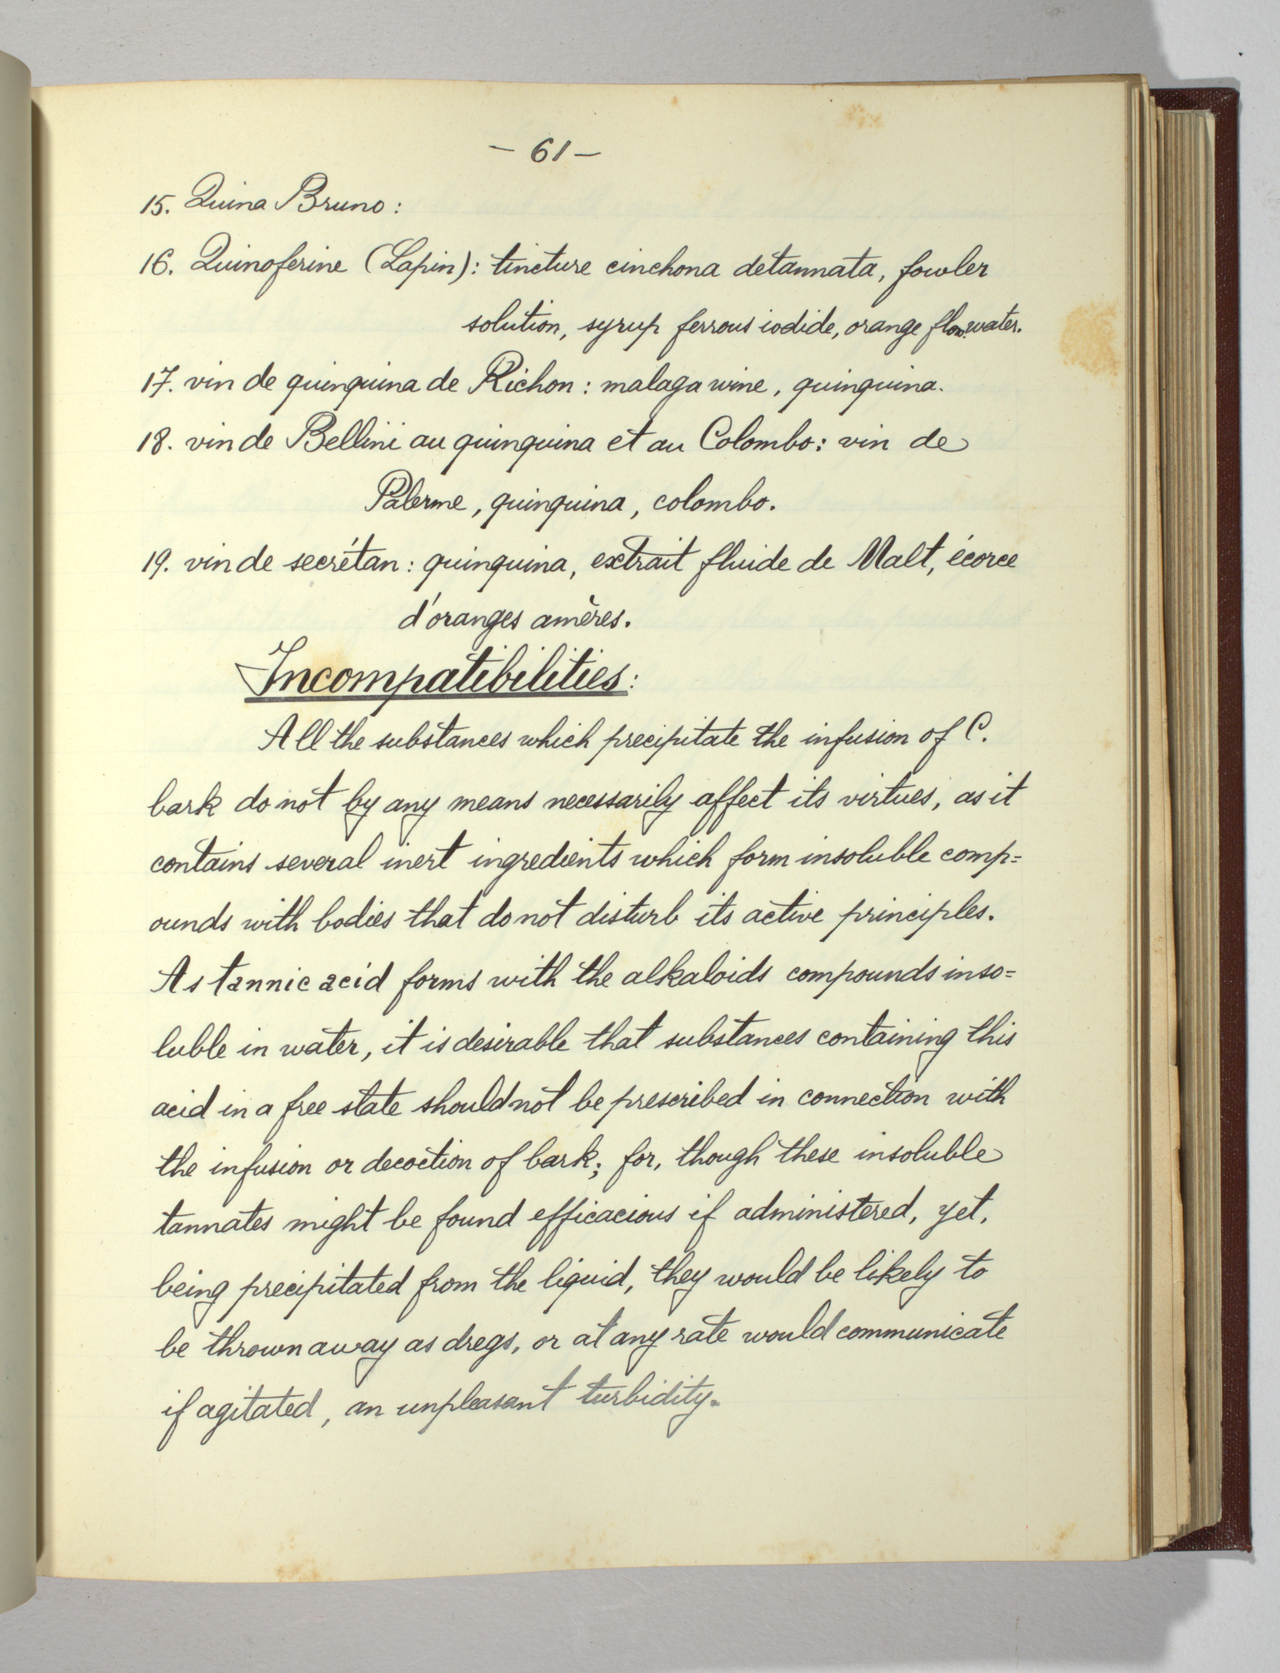 - 61 -
15. Quina Bruno:
16. Quinoferine (Lapin): tincture cinchona detannata, fowler
solution, syrup ferrous iodide, orange flow. water.
17. vin de quinquina de Richon: malaga wine, quinquina.
18. vin de Bellini au quinquina et au Colombo: vin de
Palerme, quinquina, colombo.
19. vin de secrétan: quinquina, extrait fluide de Malt, écorce
d'oranges amères.
Incompatibilities:
All the substances which precipitate the infusion of C.
bark do not by any means necessarily affect its virtues, as it
contains several inert ingredients which form insoluble comp=
ounds with bodies that do not disturb its active principles.
As tannic acid forms with the alkaloids compounds inso=
luble in water, it is desirable that substances containing this
acid in a free state should not be prescribed in connection with
the infusion or decoction of bark; for, though these insoluble
tannates might be found efficacious if administered, yet,
being precipitated from the liquid, they would be likely to
be thrown away as dregs, or at any rate would communicate
if agitated, an unpleasant turbidity.